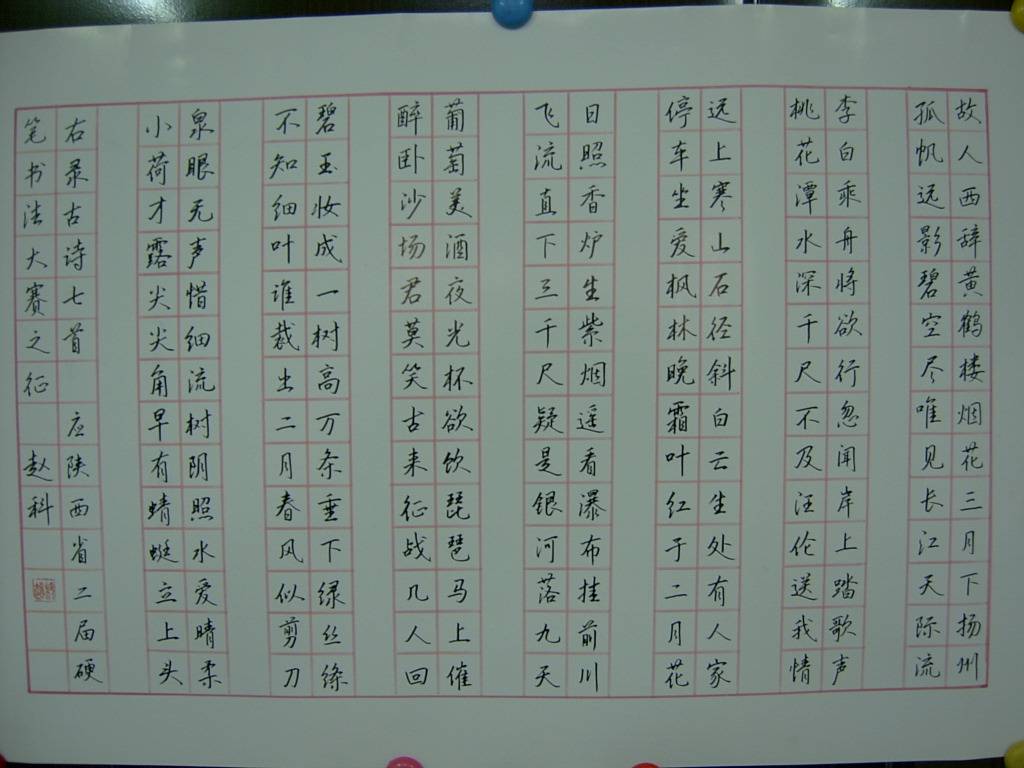 故人西辞黄鹤楼烟花三月下扬州
孤帆远影碧空尽唯见长江天际流
李白乘舟将欲行忽闻岸上踏歌声
桃花潭水深千尺不及汪伦送我情
远上寒山石径斜白云生处有人家
停车坐爱枫林晚霜叶红于二月花
日照香炉生紫烟遥看瀑布挂前川
飞流直下三千尺疑是银河落九天
葡萄美酒夜光杯欲饮琵琶马上催
醉卧沙场君莫笑古来征战几人回
碧玉妆成一树高万条垂下绿丝绦
不知细叶谁裁出二月春风似剪刀
泉眼无声惜细流树阴照水爱晴柔
小荷才露尖尖角早有蜻蜓立上头
右录古诗七首 应陕西省二届硬
笔书法大赛之征 赵科